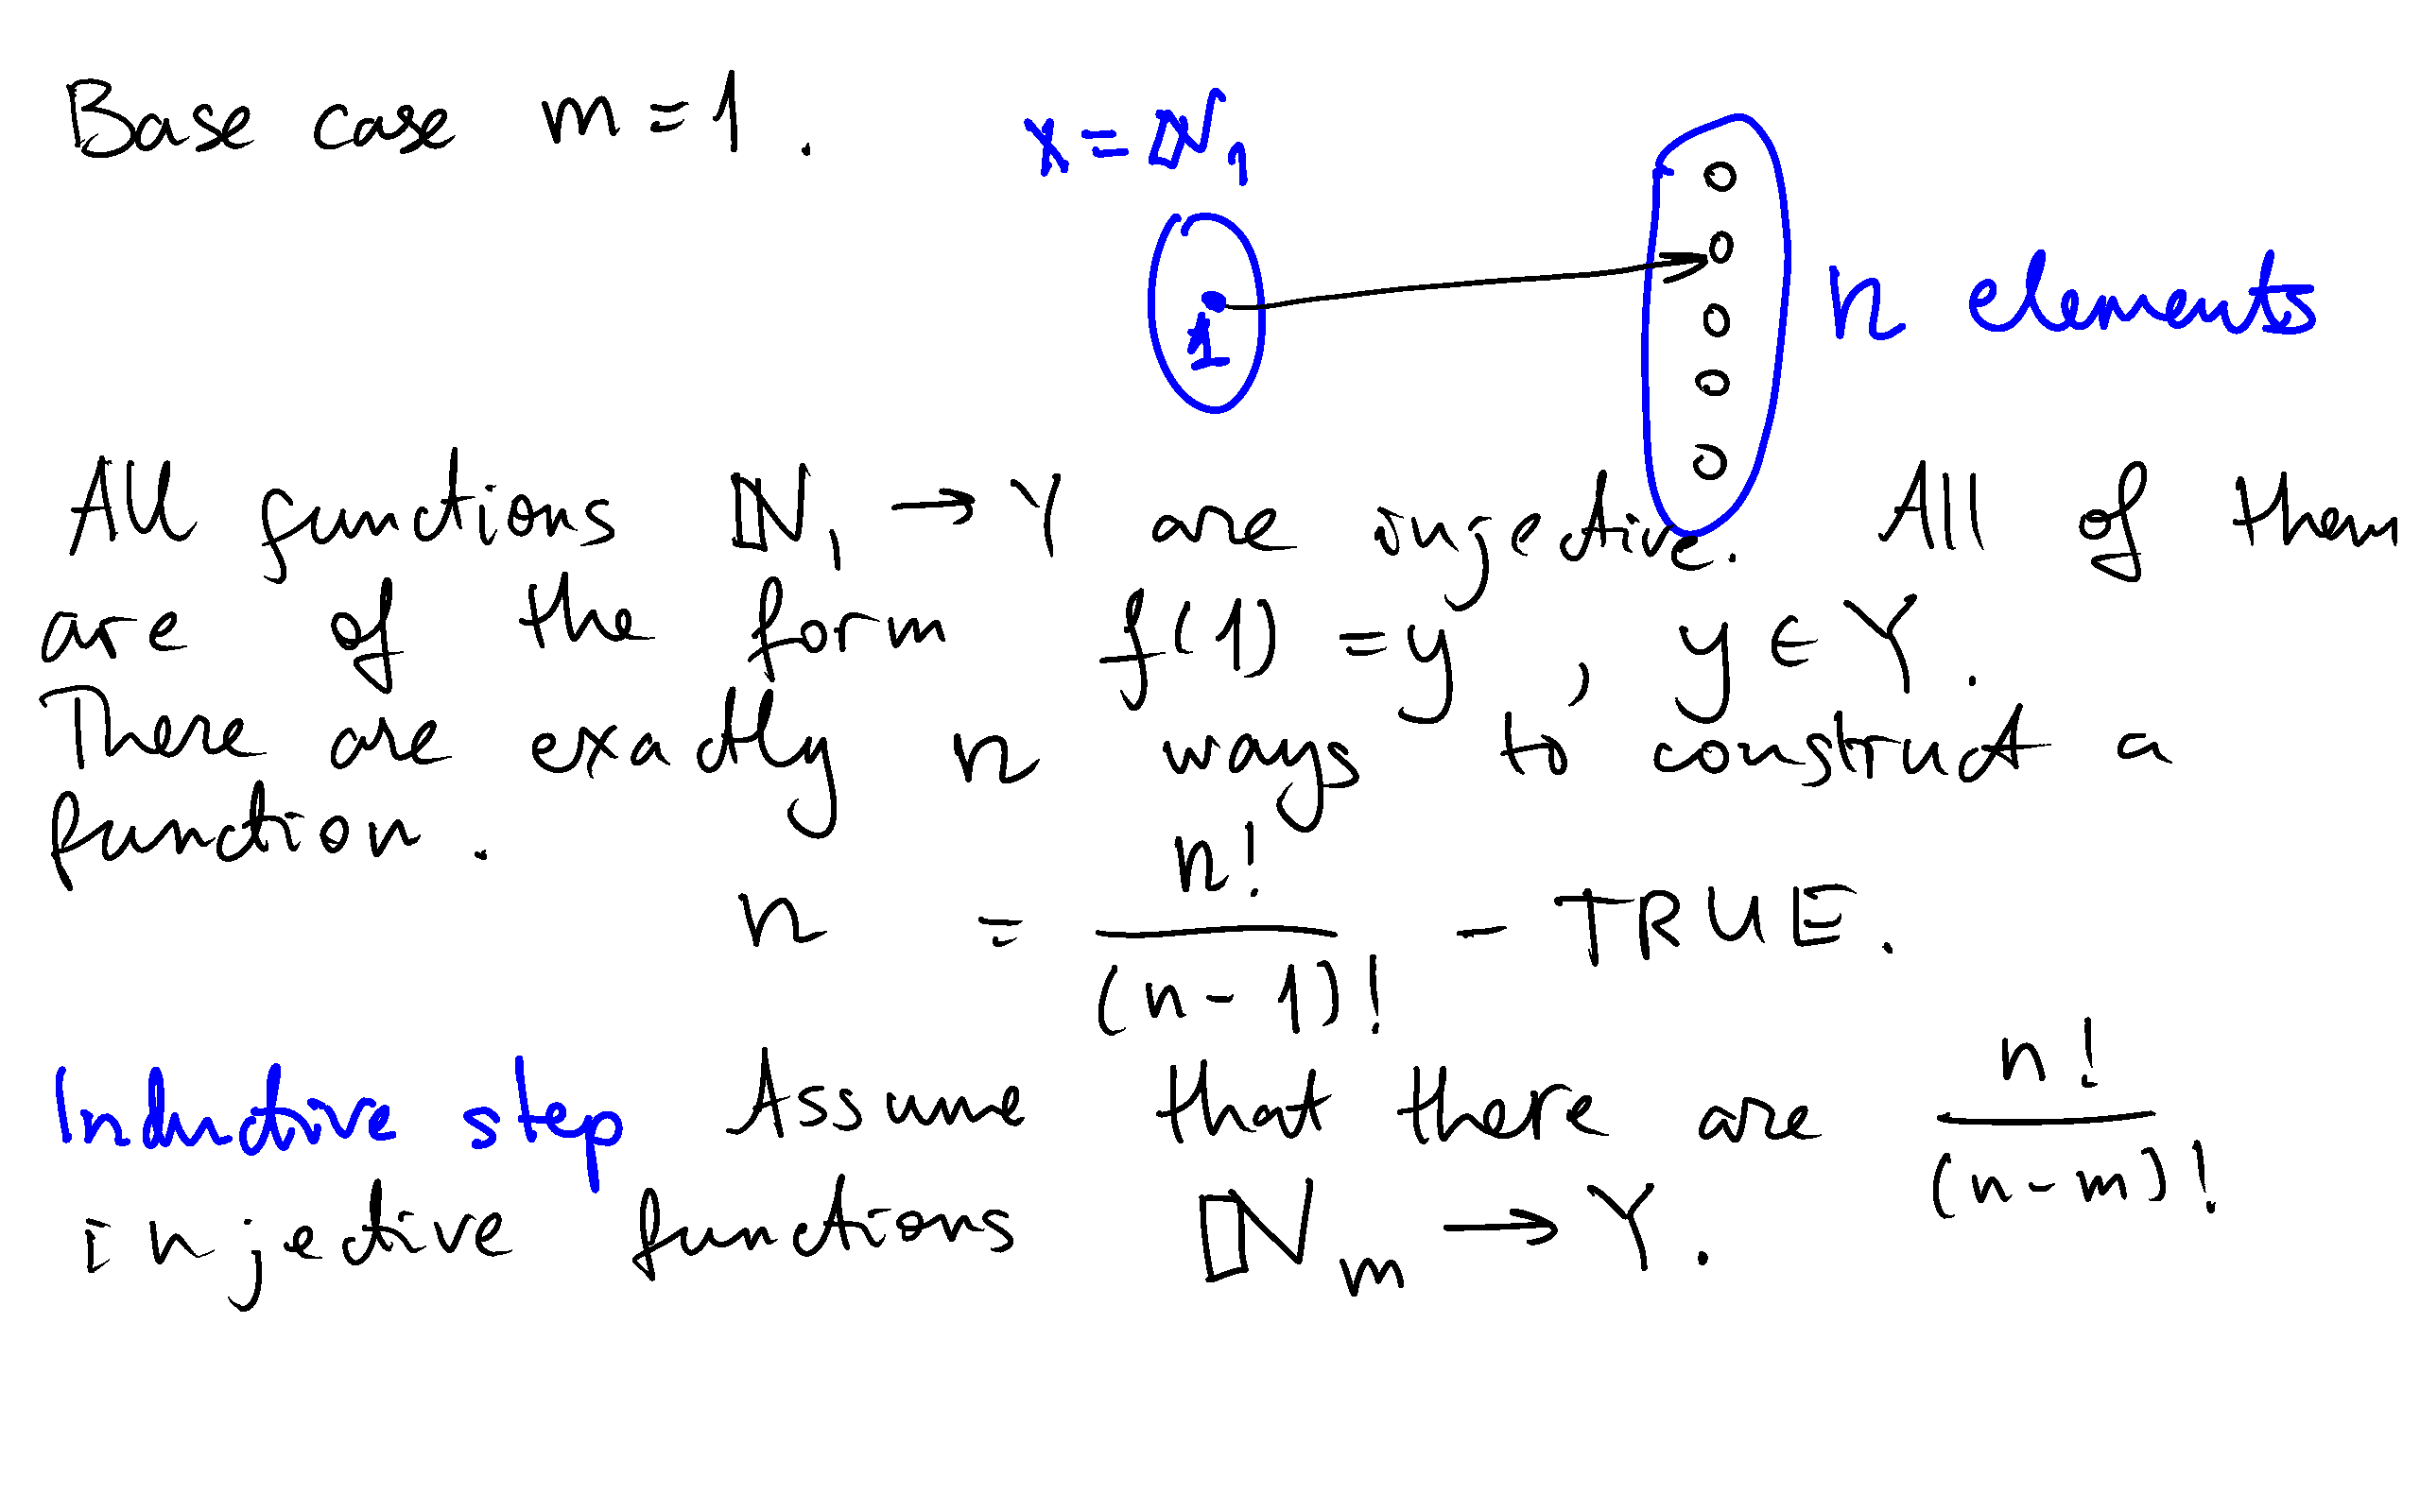 Base case m = 1.
X = ℕ₁
1
n elements
All functions ℕ₁ → Y are injective. All of them
are of the form f(1) = y, y ∈ Y.
There are exactly n ways to construct a
function.
n = n!/(n-1)! - TRUE.
Inductive step Assume that there are n!/(n-m)!
injective functions ℕₘ → Y.